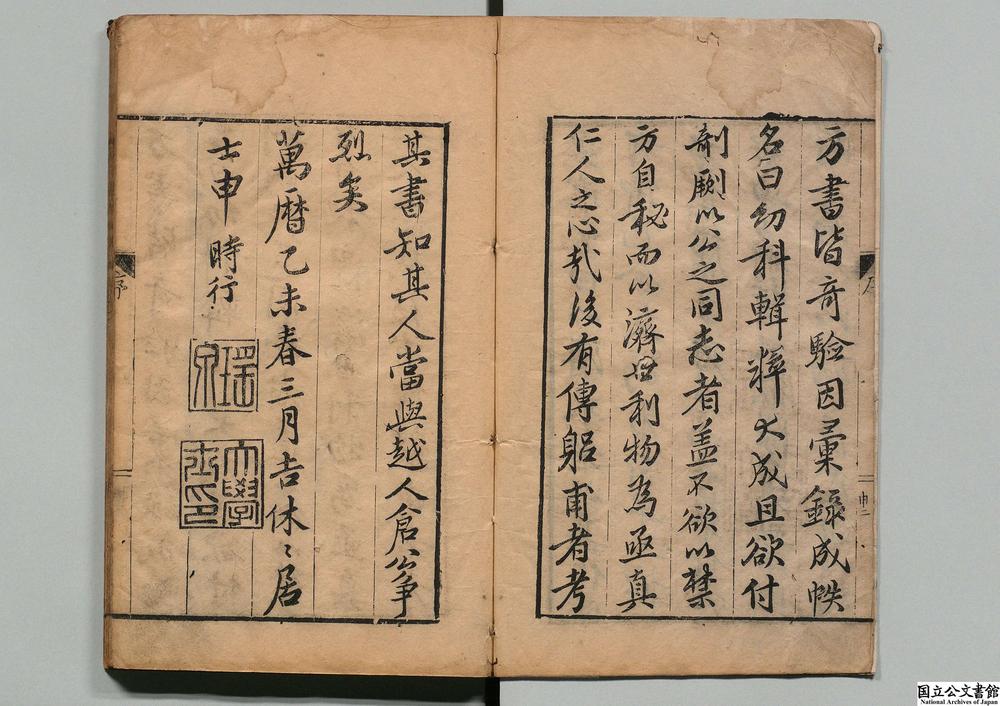 方書皆奇驗因彙錄成帙
名曰幼科輯粹大成且欲付
剞劂以公之同志者蓋不欲以禁
方自秘而以濟世利物為亟真
仁人之心哉後有傳躬甫者考
序
申二
其書知其人當與越人倉公爭
烈矣
萬曆乙未春三月吉休〻居
士申時行
瑤泉
大學士印
序
国立公文書館
National Archives of Japan